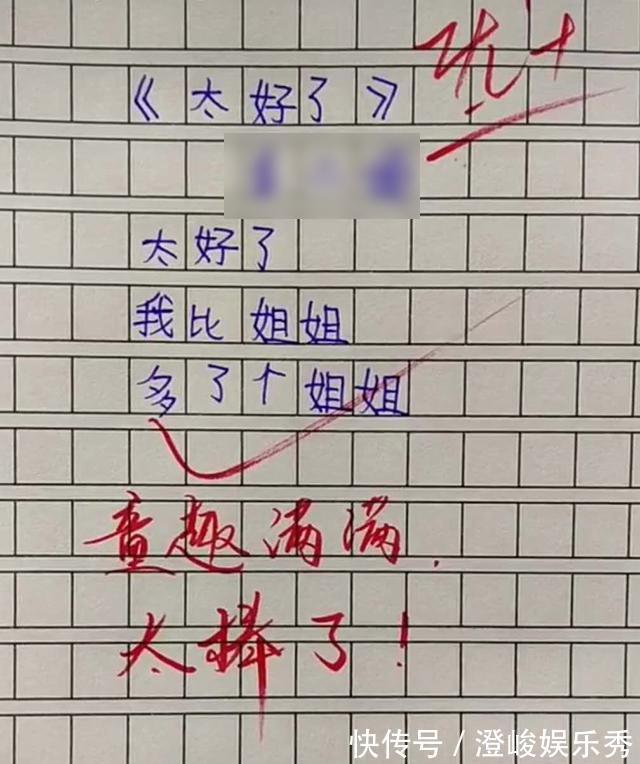 《太好了》
优+
太好了
我比姐姐
多了个姐姐
童趣满满.
太棒了!
快传号/澄峻娱乐秀